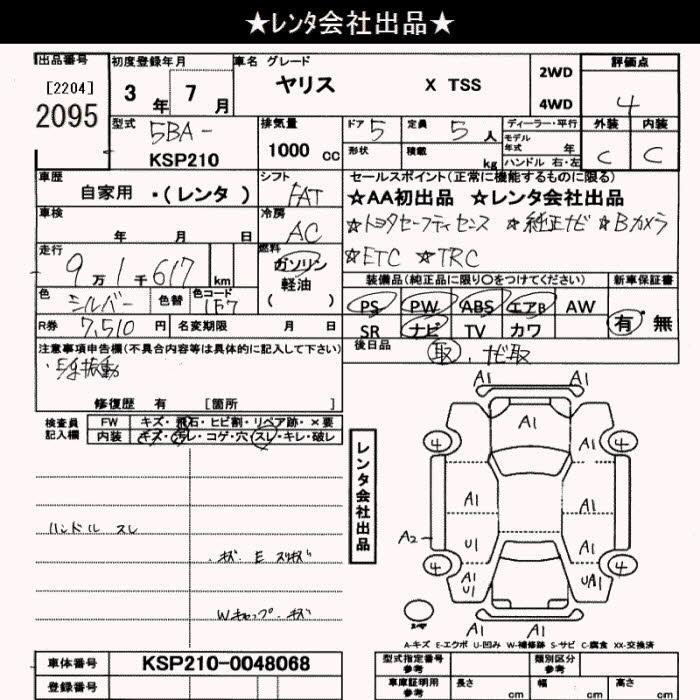 ★レンタ会社出品★
出品番号 初度登録年月 車名 グレード 評価点
[2204] 2095 3年 7月 ヤリス X TSS 2WD 4WD 4
型式 5BA- KSP210 排気量 1000 cc ドア 5 定員 5人 ディーラー・平行 外装 内装
形状 積載 kg モデル年式 年 C C
ハンドル 右・左
車歴 自家用 ・(レンタ ) シフト FAT セールスポイント(正常に機能するものに限る)
★AA初出品 ★レンタ会社出品
車検 年 月 日 冷房 AC ☆トヨタセーフティセンス ☆純正ナビ ☆Bカメラ
走行 9万1千617 km 燃料 ガソリン 軽油 ( ) ☆ETC ☆TRC
装備品(純正品に限り○をつけてください) 新車保証書
色 シルバー 色替 色コード 1F7 PS PW ABS エアB AW 有・無
R券 7,510円 名変期限 月 日 SR ナビ TV カワ
注意事項申告欄(不具合内容等は具体的に記入して下さい) 後日品 取.ナビ取
修復歴 有 [箇所 ]
検査員記入欄 FW キズ・飛石・ヒビ割・リペア跡・×要
内装 キズ・汚レ・コゲ・穴・スレ・キレ・破レ
レンタ会社出品
A1 A1
A1
4 4
A1 A1
A2 U1 A1
4 4
A1 U1 UA1
A1 A1
ハンドル スレ
Wキャップ キズ
A-キズ E-エクボ U-凹み W-補修跡 S-サビ C-腐食 XX-交換済
車体番号 KSP210-0048068 型式指定番号 参考 類別区分 参考
登録番号 車庫証明用 参考 長さ cm 幅 cm 高さ cm